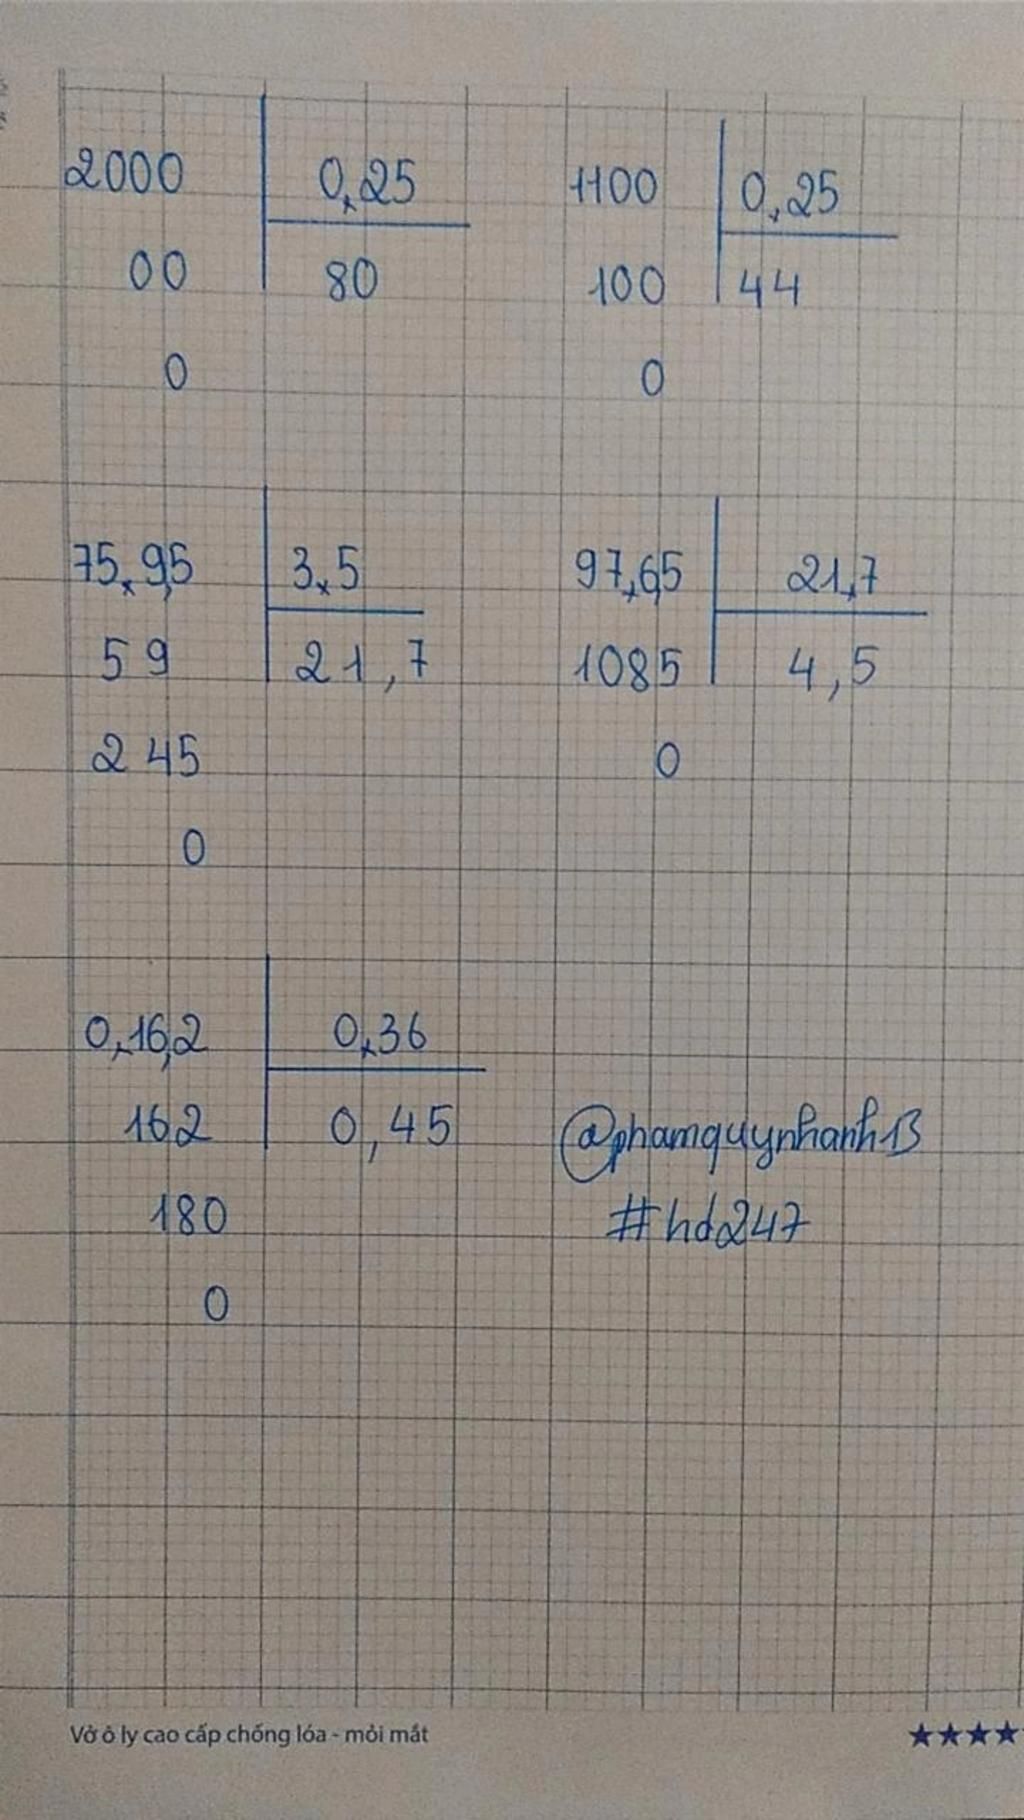 2000 0,25
00 80
0
1100 0,25
100 44
0
75,9,5 3,5
59 21,7
245
0
97,6,5 21,7
1085 4,5
0
0,16,2 0,36
162 0,45
180
0
@phamquynhanh13
#hd247
Vở ô ly cao cấp chống lóa - mỏi mắt
★★★★